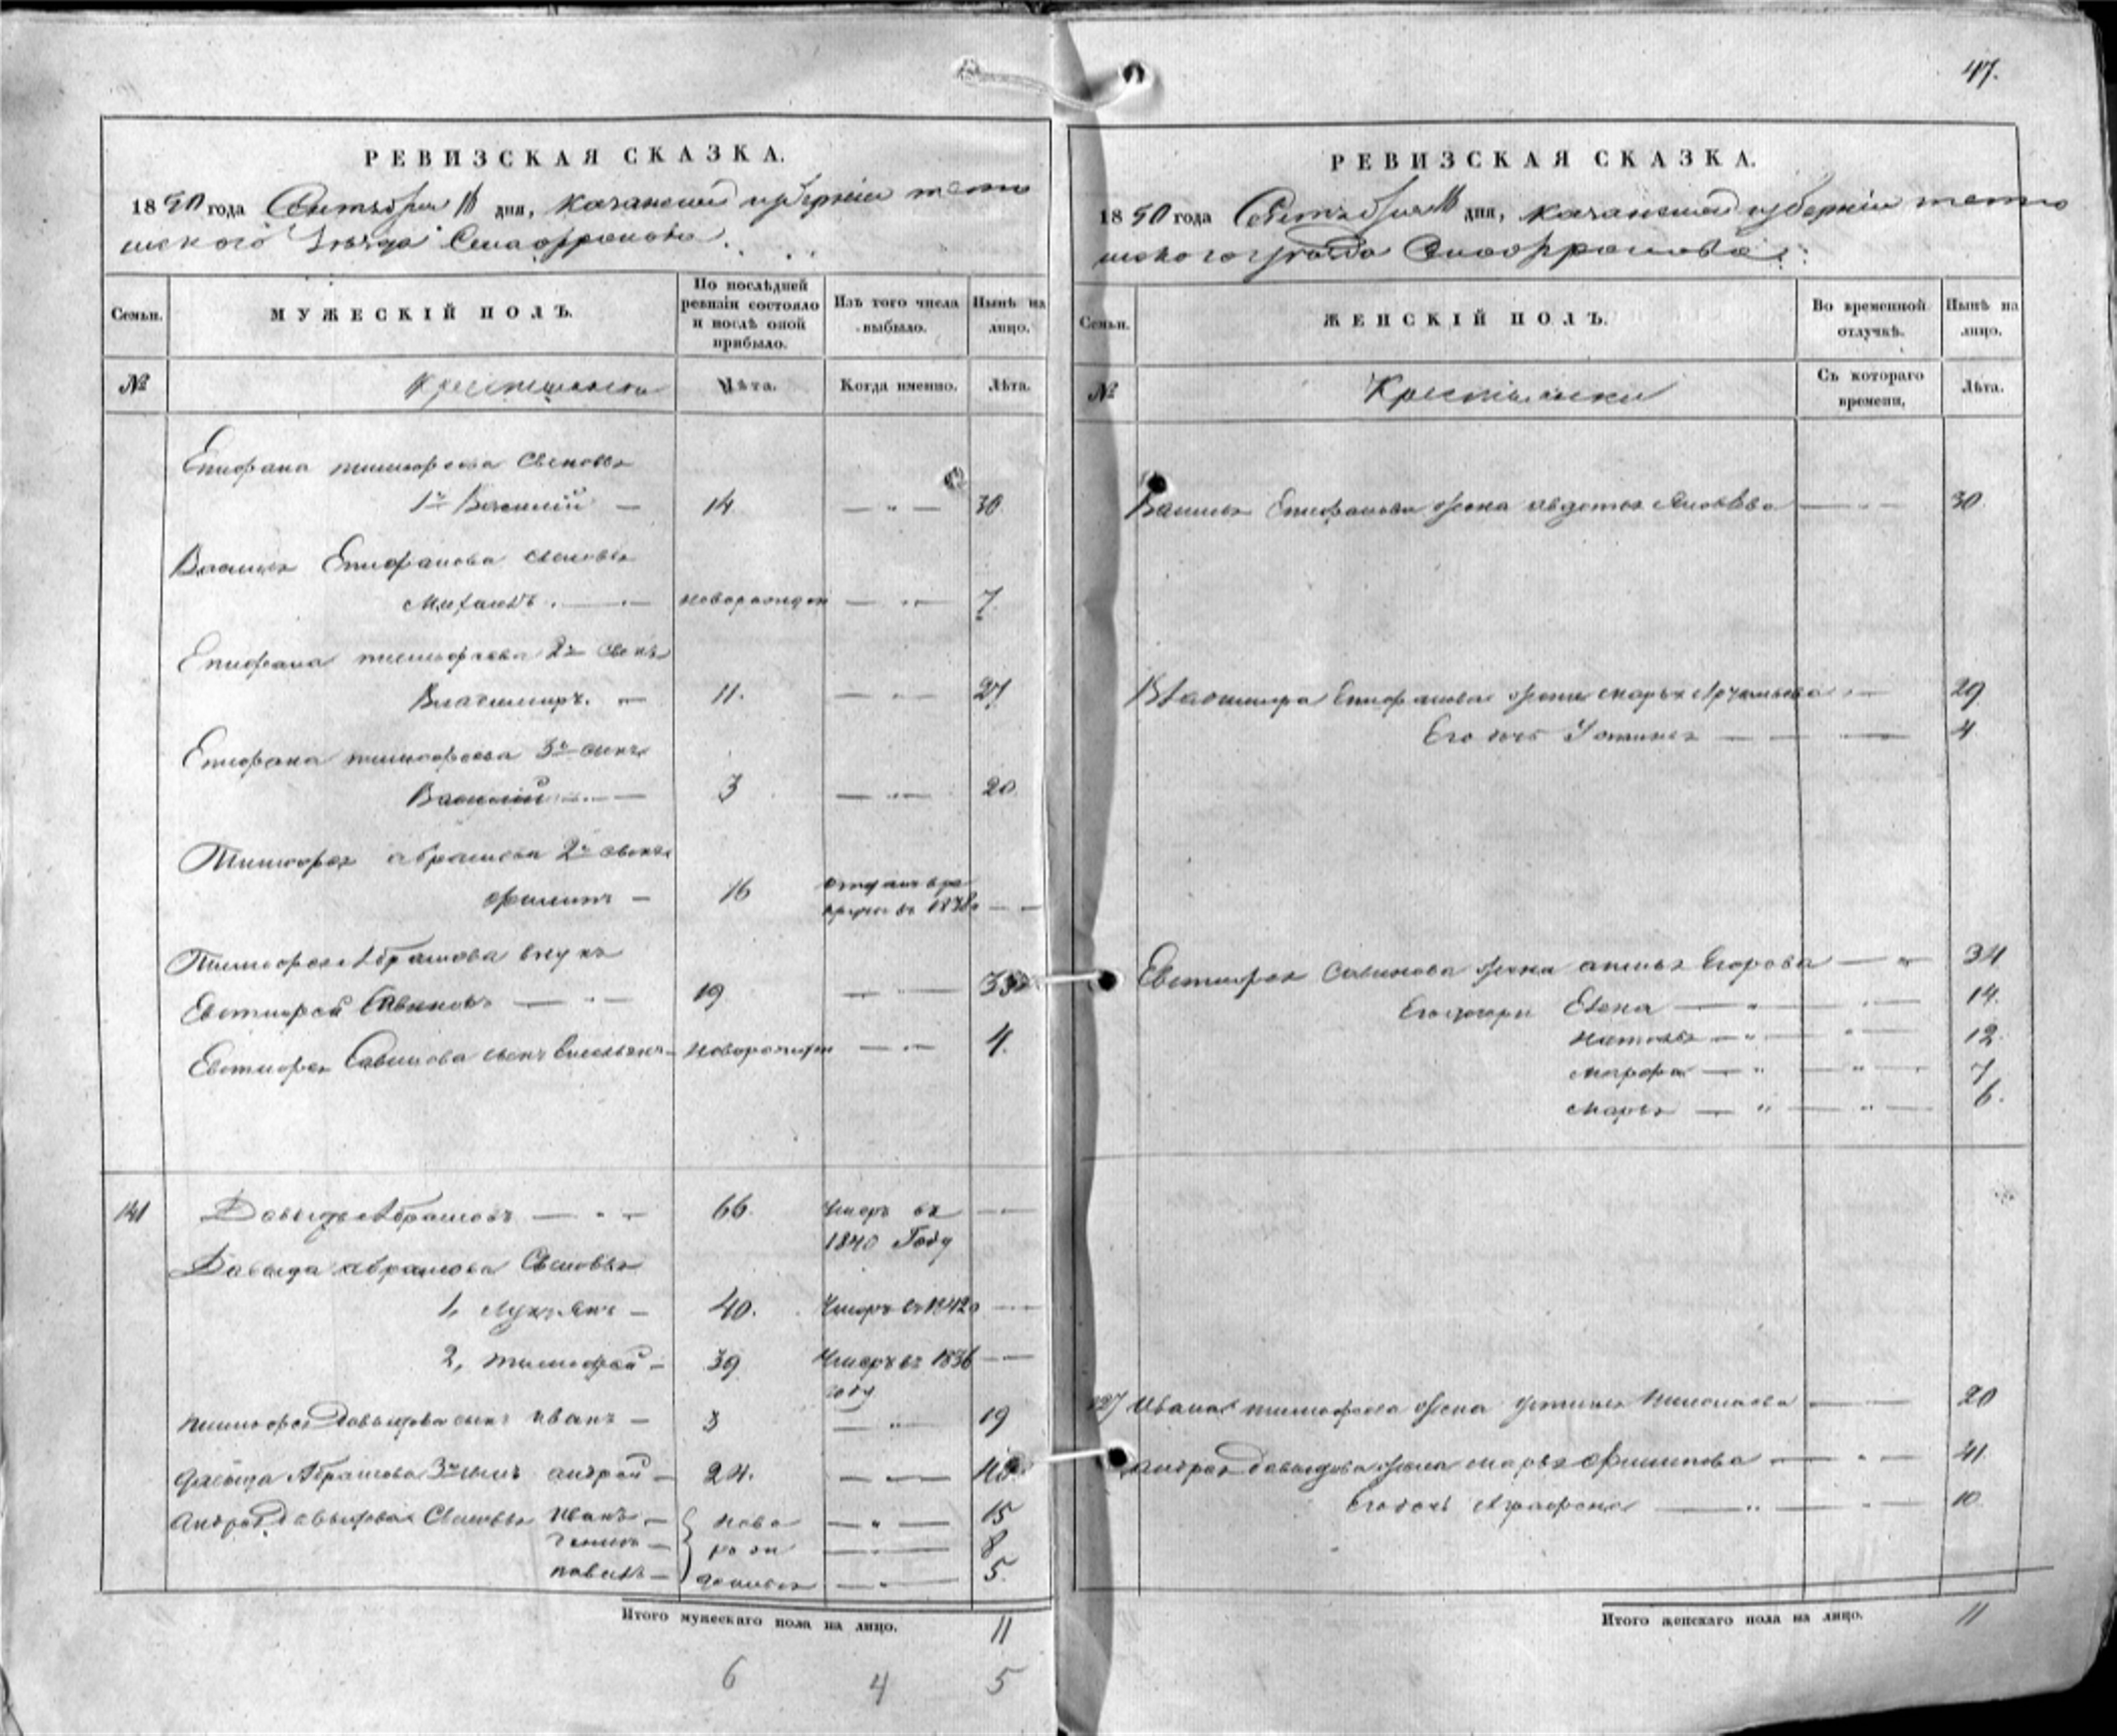 47.
РЕВИЗСКАЯ СКАЗКА.
1850 года Сентября 16 дня, Казанской губернии тетю
шского уезда Села
Семьи.
МУЖЕСКІЙ ПОЛЪ.
По послѣдней ревизіи состояло и послѣ оной прибыло.
Изъ того числа выбыло.
Нынѣ на лицо.
№
Лѣта.
Когда именно.
Лѣта.
Епифана тимофеева сыновья
1й Василий — 14 — " — 30
Василья Епифанова сыновья
Михаилъ. — новорожден — " — 7.
Епифана тимофеева 2й сынъ
Владимиръ. — 11. — " — 27
Епифана тимофеева 3й сынъ
Василий — 3 — " — 20
Тимофея абрамова 2й сынъ
Филипъ — 16 отданъ в ре
круты въ 1838
Тимофея Абрамова внукъ
Евтифей Савиновъ — " — 19 — " — 33
Евтифея Савинова сынъ Емельянъ — новорожден — " — 4.
141 Давыдъ Абрамовъ — " — 66. Умеръ въ — —
1840 Году
Давыда абрамова Сыновья
1, Лукьянъ — 40. Умеръ въ 1842 — —
2, тимофей — 39 Умеръ въ 1836 — —
году
тимофея Давыдова сынъ иванъ — 3 — " — 19
давыда Абрамова 3й сынъ андрей — 24. — " — 40
андрея давыдова Сыновья иванъ — ново — " — 15
рож — " — 8
павелъ — денные — " — 5.
Итого мужескаго пола на лицо. 11
6 4 5
РЕВИЗСКАЯ СКАЗКА.
1850 года Сентября 16 дня, Казанской губернии тетю
шского уезда Села
Семьи.
ЖЕНСКІЙ ПОЛЪ.
Во временной отлучкѣ.
Нынѣ на лицо.
№
Крестьянки
Съ котораго времени,
Лѣта.
Василья Епифанова жена авдотья Яковлева — " — 30.
Владимира Епифанова жена марья — 29
Его дочь Устинья — — 4
Евтифея савинова жена анна Егорова — " — 34
Его дочери Елена — " — 14.
наталья — " — 12.
марфа — " — 7
марья — " — 6.
127 Ивана тимофеева жена устинья Николаева — — 20
андрея давыдова жена марья филипова — " — 41.
Его дочь Аграфена — " — 10.
Итого женскаго пола на лицо. 11